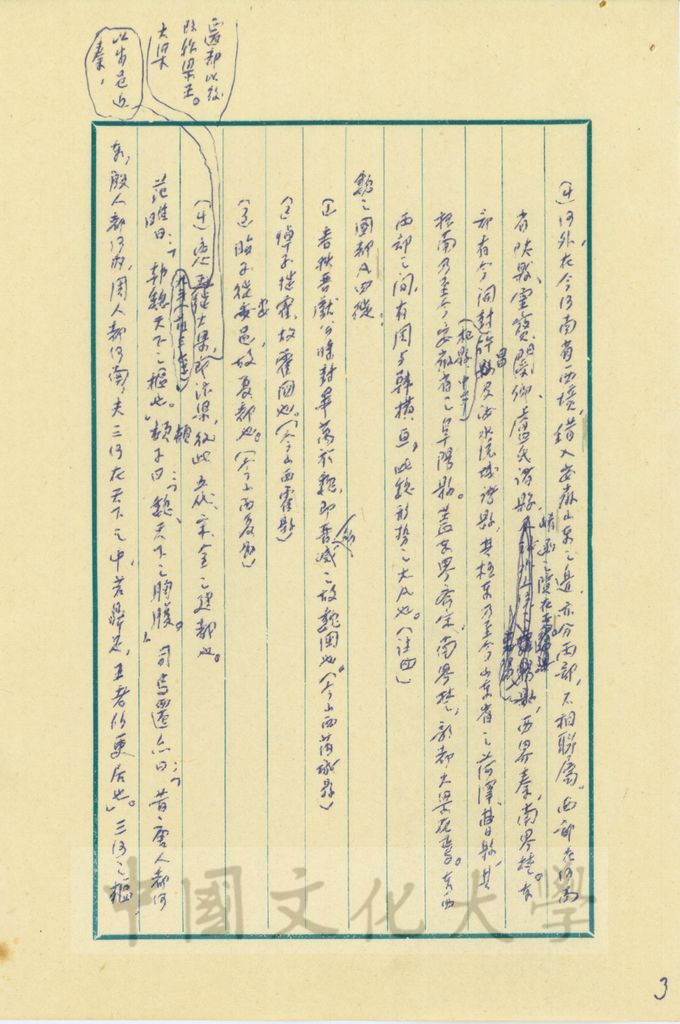 (4)河外在今河南省西境，錯入安徽山東之邊，亦分兩部，不相聯屬。西部在河南
省陝縣、靈寶、閿鄉、盧氏諸縣，崤函之險在焉。西界秦，南界楚。東
部有今開封、許昌及汝水流域諸縣，其極東乃至今山東省之菏澤、其
極南乃至今安徽省之阜陽縣。蓋東界齊宋，南界楚，新都大梁在焉。東西
兩部之間，有周與韓橫亘，此魏形勢之大凡也。
魏之國都凡四徙：
(1)春秋晉獻公時封畢萬於魏，即晉滅之故魏國也。(今山西芮城縣)
(2)悼子徙霍，故霍國也。(今山西霍縣)
(3)昭子徙安邑，故夏都也。(今山西夏縣)
(4)惠王徙大梁，即汴梁，後此五代、宋、金之建都也。
遷都以後
改稱梁王。
大梁
以安邑近
秦，
范睢曰：「韓魏天下之樞也。」頓子曰：「魏，天下之胸腹。」司馬遷亦曰：「昔唐人都河
東，殷人都河內，周人都河南，夫三河在天下之中，若鼎足，王者所更居也。」三河之樞
中國文化大學
3